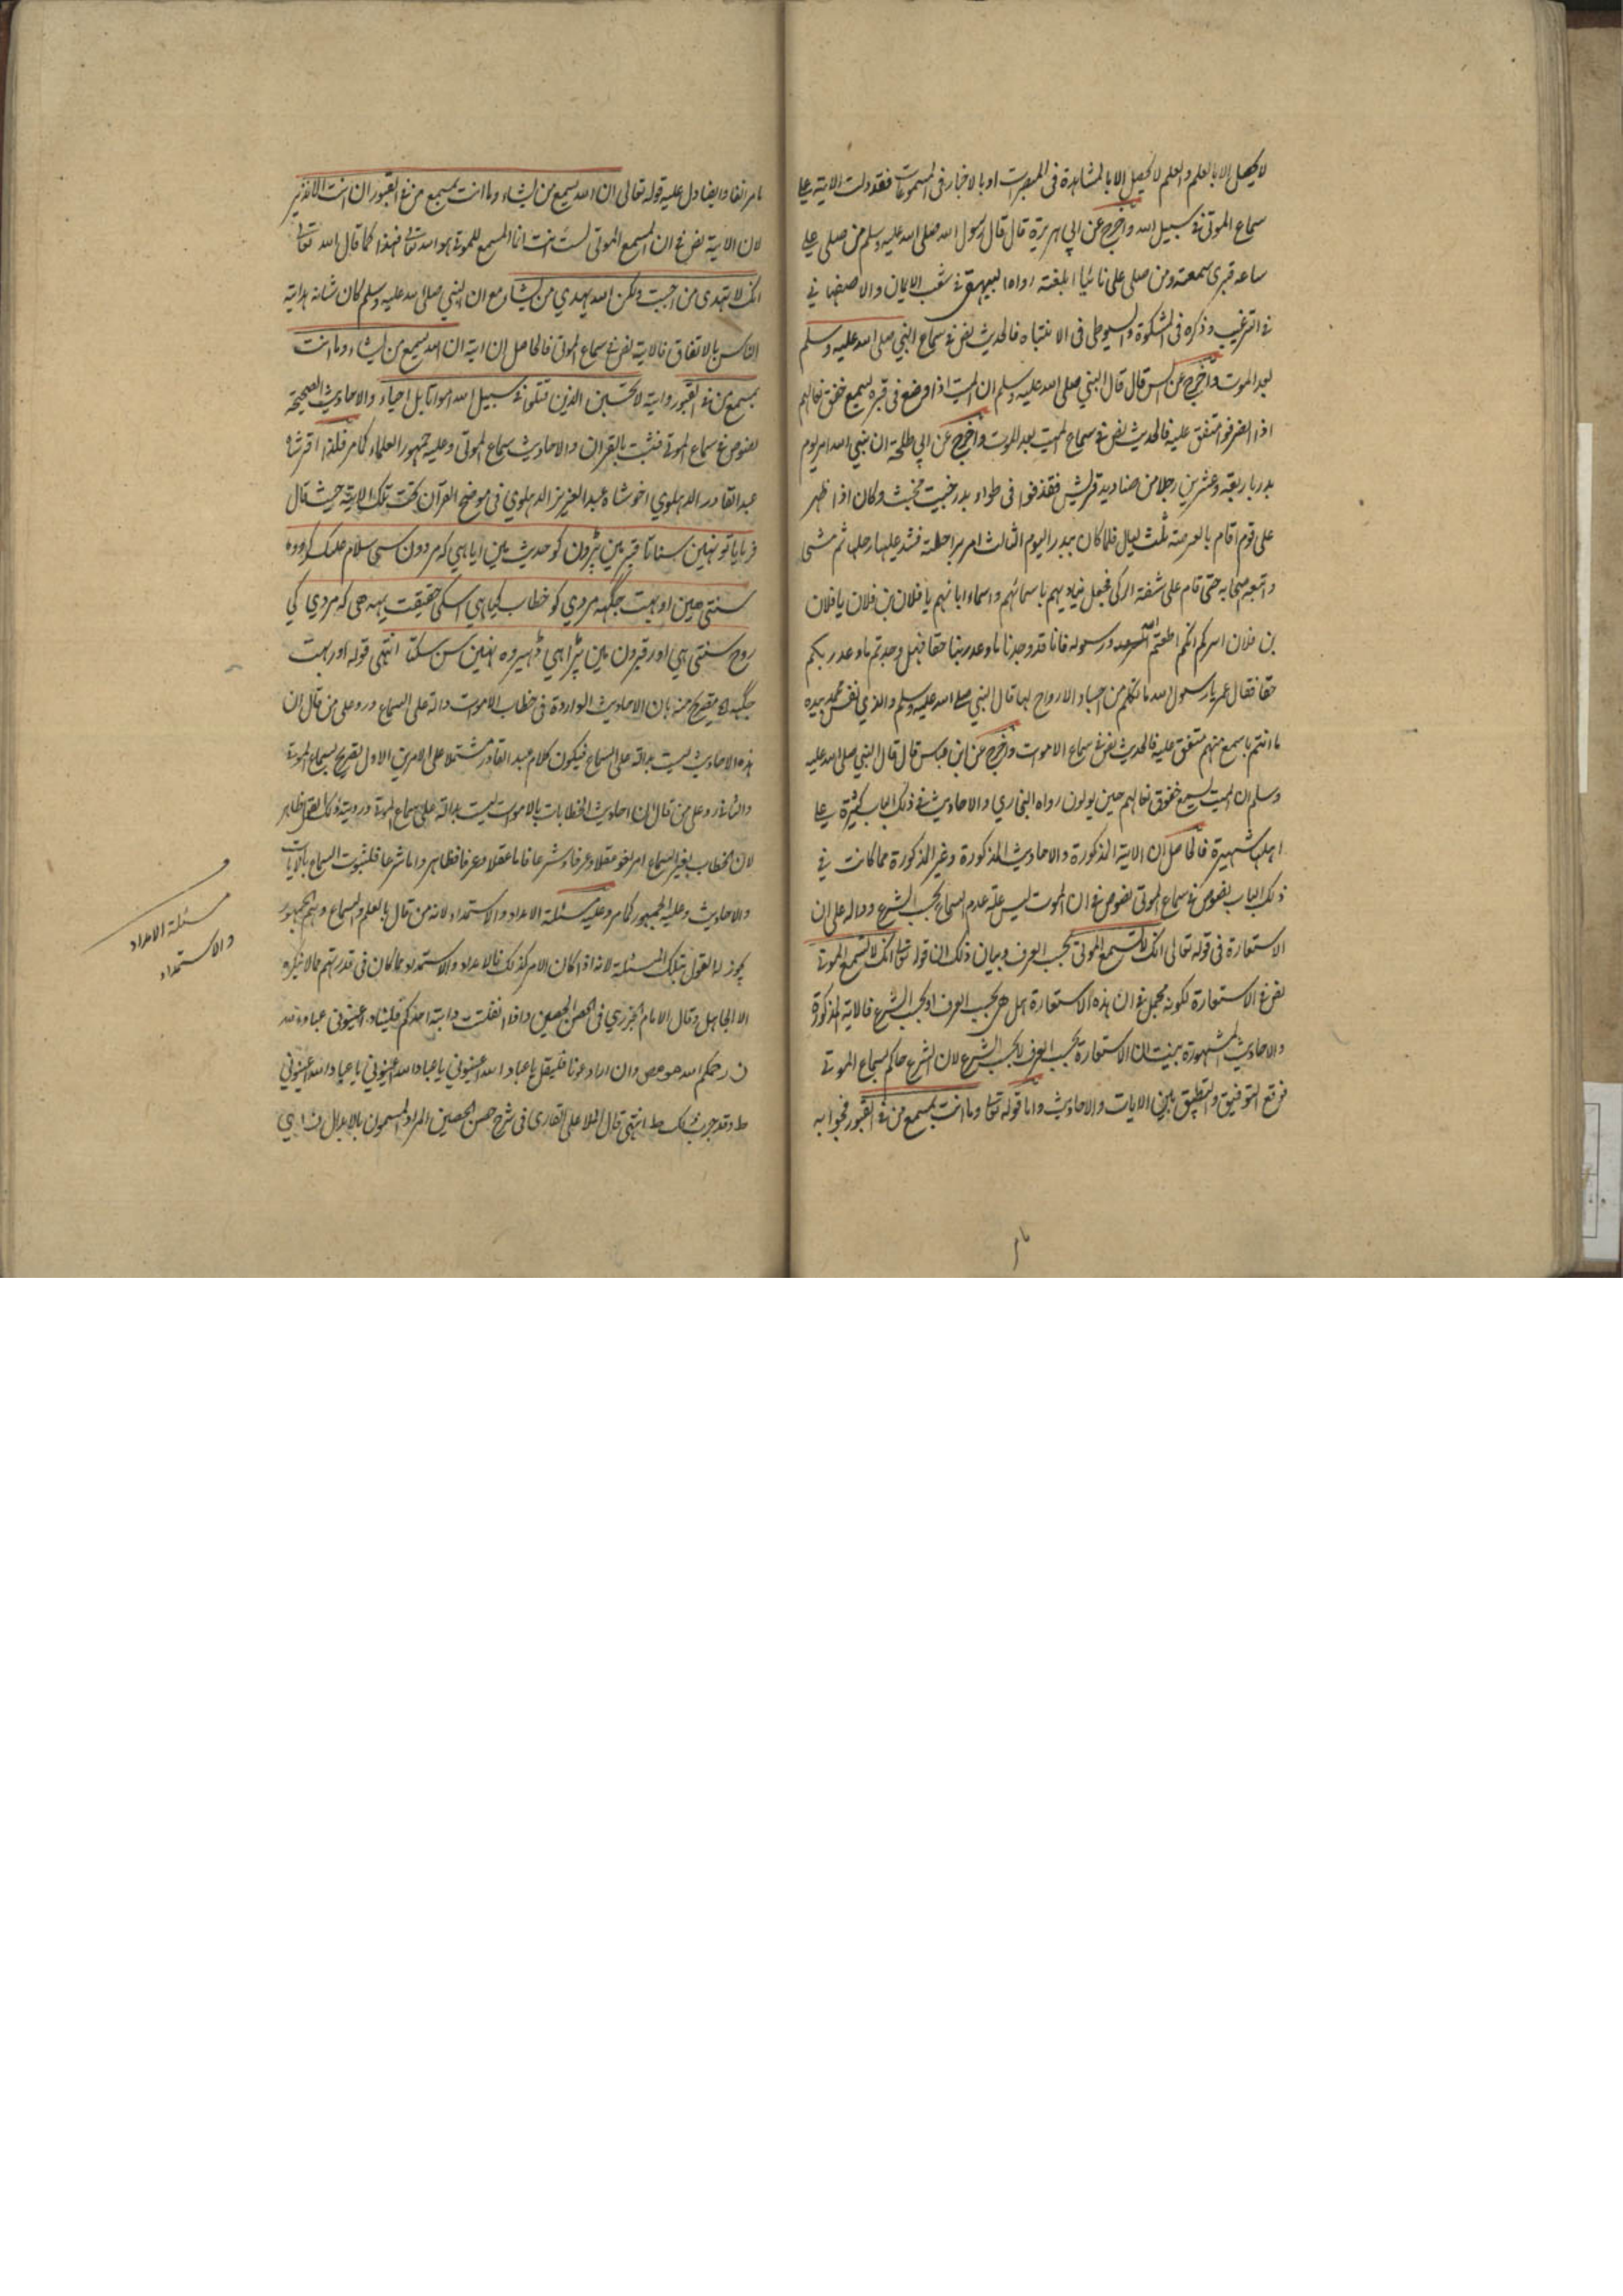 لا يحصل الا بالعلم والعلم لا يحصل الا بالمشاهدة فى المبصرات او بالاخبار فى المسموعات فقد دلت الاية على
سماع الموتى فى سبيل الله واخرج عن ابي هريرة قال قال رسول الله صلى الله عليه وسلم من صلى على
عند قبرى سمعته ومن صلى على نائيا ابلغته رواه البيهقى فى شعب الايمان والاصفهانى
فى الترغيب وذكره فى المشكوة والسيوطى فى الانتباه فالحديث نص فى سماع النبي صلى الله عليه وسلم
بعد الموت واخرج عن انس قال قال النبي صلى الله عليه وسلم ان الميت اذا وضع فى قبره ليسمع خفق نعالهم
اذا انصرفوا متفق عليه فالحديث نص فى سماع الميت بعد الموت واخرج عن ابي طلحة ان نبي الله امر يوم
بدر باربعة وعشرين رجلا من صناديد قريش فقذفوا فى طواء بدر خبيث مخبث وكان اذا ظهر
على قوم اقام بالعرصة ثلث ليال فلما كان ببدر اليوم الثالث امر براحلته فشد عليها رحلها ثم مشى
واتبعه اصحابه حتى قام على شفة الركى فجعل يناديهم باسمائهم واسماء ابائهم يا فلان بن فلان يا فلان
بن فلان ايسركم انكم اطعتم الله ورسوله فانا قد وجدنا ما وعدنا ربنا حقا فهل وجدتم ما وعد ربكم
حقا فقال عمر يا رسول الله ما تكلم من اجساد لا ارواح لها قال النبي صلى الله عليه وسلم والذي نفس محمد بيده
ما انتم باسمع منهم متفق عليه فالحديث نص فى سماع الاموات واخرج عن ابن عباس قال قال النبي صلى الله عليه
وسلم ان الميت يسمع خفوق نعالهم حين يولون رواه البخاري والاحاديث فى ذلك الباب كثيرة على
شهيرة فالحاصل ان الاية المذكورة والاحاديث المذكورة وغير المذكورة مما كانت فى
ذلك الباب نصوص فى سماع الموتى نصوص فى ان الموت ليس علة عدم السماع بحسب الشرع ودالة على ان
الاستعارة فى قوله تعالى انك لا تسمع الموتى بحسب العرف وبيان ذلك ان قوله تعالى انك لا تسمع الموتى
نص فى الاستعارة لكونه مجمل فى ان هذه الاستعارة هل هى بحسب العرف او بحسب الشرع فالاية المذكورة
والاحاديث المشهورة بينت ان الاستعارة بحسب العرف لا بحسب الشرع لان الشرع حاكم بسماع الموتى
فوقع التوفيق والتطبيق بين الايات والاحاديث واما قوله تعالى وما انت بمسمع من فى القبور فجوابه
مامر
مامر انفا وايضا دل عليه قوله تعالى ان الله يسمع من يشاء وما انت بمسمع من فى القبور ان انت الا نذير
لان الاية نص فى ان المسمع الموتى لست انت انما المسمع للموتى هو الله تعالى فهذا كما قال الله تعالى
انك لا تهدى من احببت ولكن الله يهدي من يشاء مع ان النبي صلى الله عليه وسلم كان شانه هداية
الناس بالاتفاق فالاية نص فى سماع الموتى فالحاصل ان اية ان الله يسمع من يشاء وما انت
بمسمع من فى القبور واية لا تحسبن الذين قتلوا فى سبيل الله امواتا بل احياء والاحاديث الصحيحة
نصوص فى سماع الموتى فثبت بالقران والاحاديث سماع الموتى وعليه جمهور العلماء كما مر فلذا اقر شاه
عبد القادر الدهلوي اخو شاه عبد العزيز الدهلوي فى موضح القرآن تحت تلك الاية حيث قال
فرمايا تو نهين سناتا قبر مين پڑون كو حديث مين ايا هي كه مردون سى سلام عليك كرو وه
سنتى هين اور بهت جگهه مردي كو خطاب كيا هي اسكى حقيقت يهه هى كه مردي كى
روح سنتى هي اور قبرون مين پڑا هي دهڑ وه نهين سن سكتا انتهى قوله اور بهت
جگهه الخ تصريح منه بان الاحاديث الواردة فى خطاب الاموات دالة على السماع ورد على من قال ان
هذه الاحاديث ليست بدالة على السماع فيكون كلام عبد القادر مشتملا على الامرين الاول التصريح بسماع الموتى
والثانى رد على من قال ان احاديث الخطابات بالاموات ليست بدالة على سماع الموتى
لان الخطاب بغير السماع امر لغو عقلا وعرفا وشرعا فاما عقلا وعرفا فظاهر واما شرعا فلثبوت السماع بالايات
والاحاديث وعليه الجمهور كما مر وعليه مسئلة الامداد والاستمداد لانه من قال بالعلم والسماع وهم الجمهور
يجوز له القول بتلك المسئلة لانه اذا كان الامر كذلك فالامداد والاستمداد مما كان فى قدرتهم مما لا ينكره
الا الجاهل وقال الامام الجزري فى الحصن الحصين واذا انفلتت دابة احدكم فليناد اعينونى عباد الله
رحمكم الله مو مص وان اراد عونا فليقل يا عباد الله اعينوني يا عباد الله اعينوني يا عباد الله اعينوني
ط وقد جرب ذلك ط انتهى قال الملا على القارى فى شرح حصن الحصين المراد المسمون بالابدال
مسئلة الامداد
والاستمداد